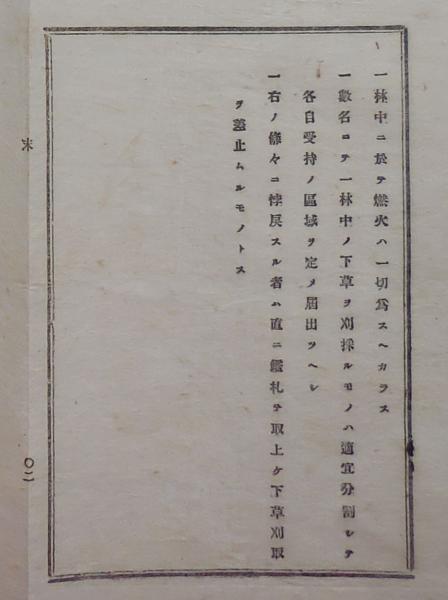 一林中ニ於テ燃火ハ一切爲スヘカラス
一數名ニテ一林中ノ下草ヲ刈採ルモノハ適宜分割シテ
各自受持ノ區域ヲ定メ屆出ツヘシ
一右ノ條々ニ悖戻スル者ハ直ニ鑑札ヲ取上ケ下草刈取
ヲ差止ムルモノトス
末
〇二